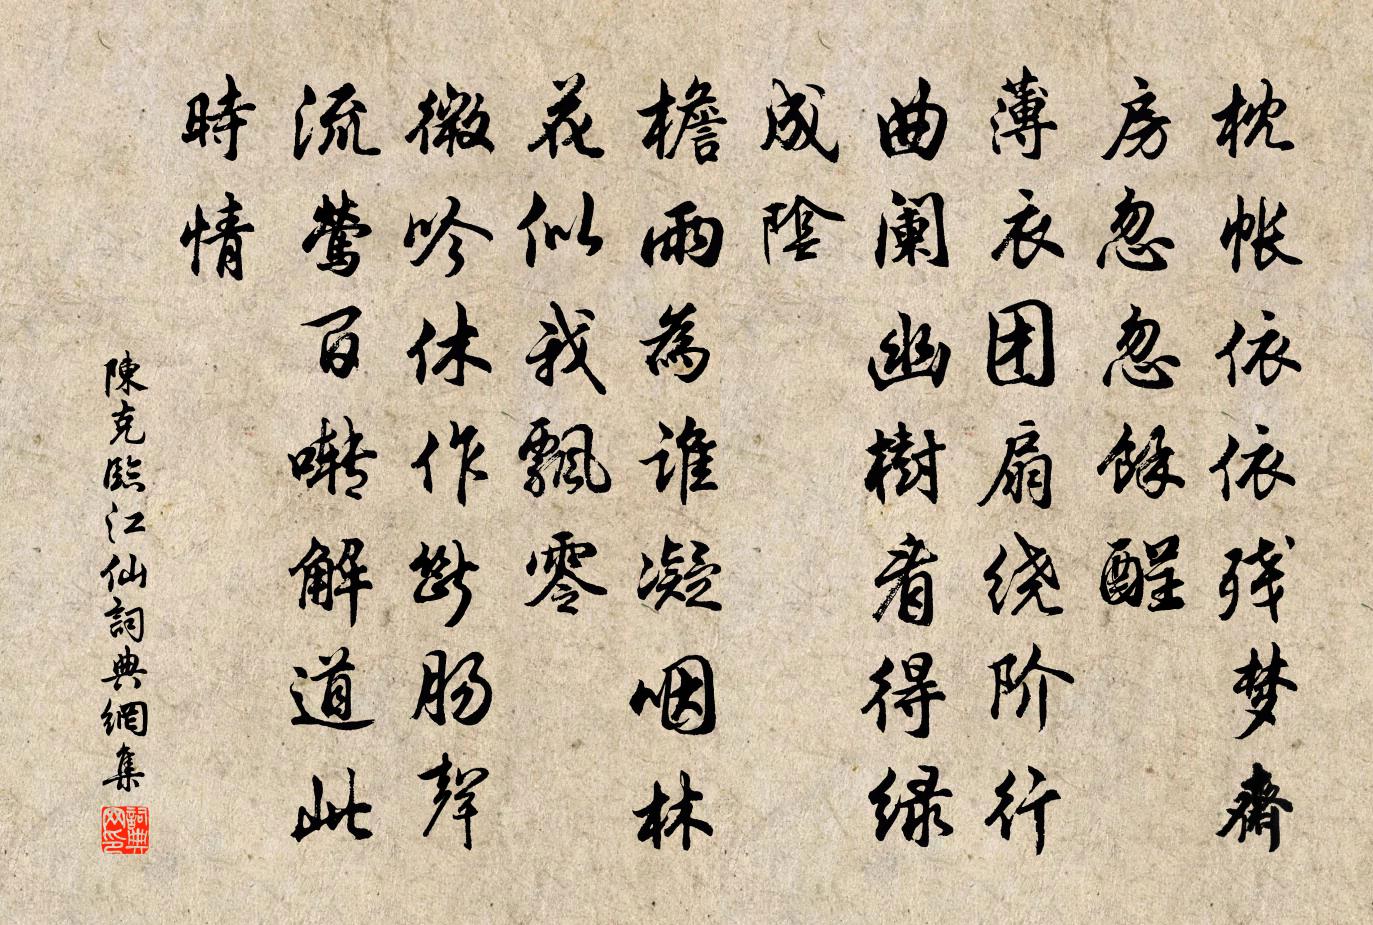 枕帐依依残梦齋
房忽忽餘酲
薄衣团扇绕阶行
曲阑幽樹看得绿
成陰
檐雨為谁凝咽林
花似我飄零
微吟休作断肠聲
流鶯百啭解道此
時情
陳克臨江仙詞典網集
詞典網印